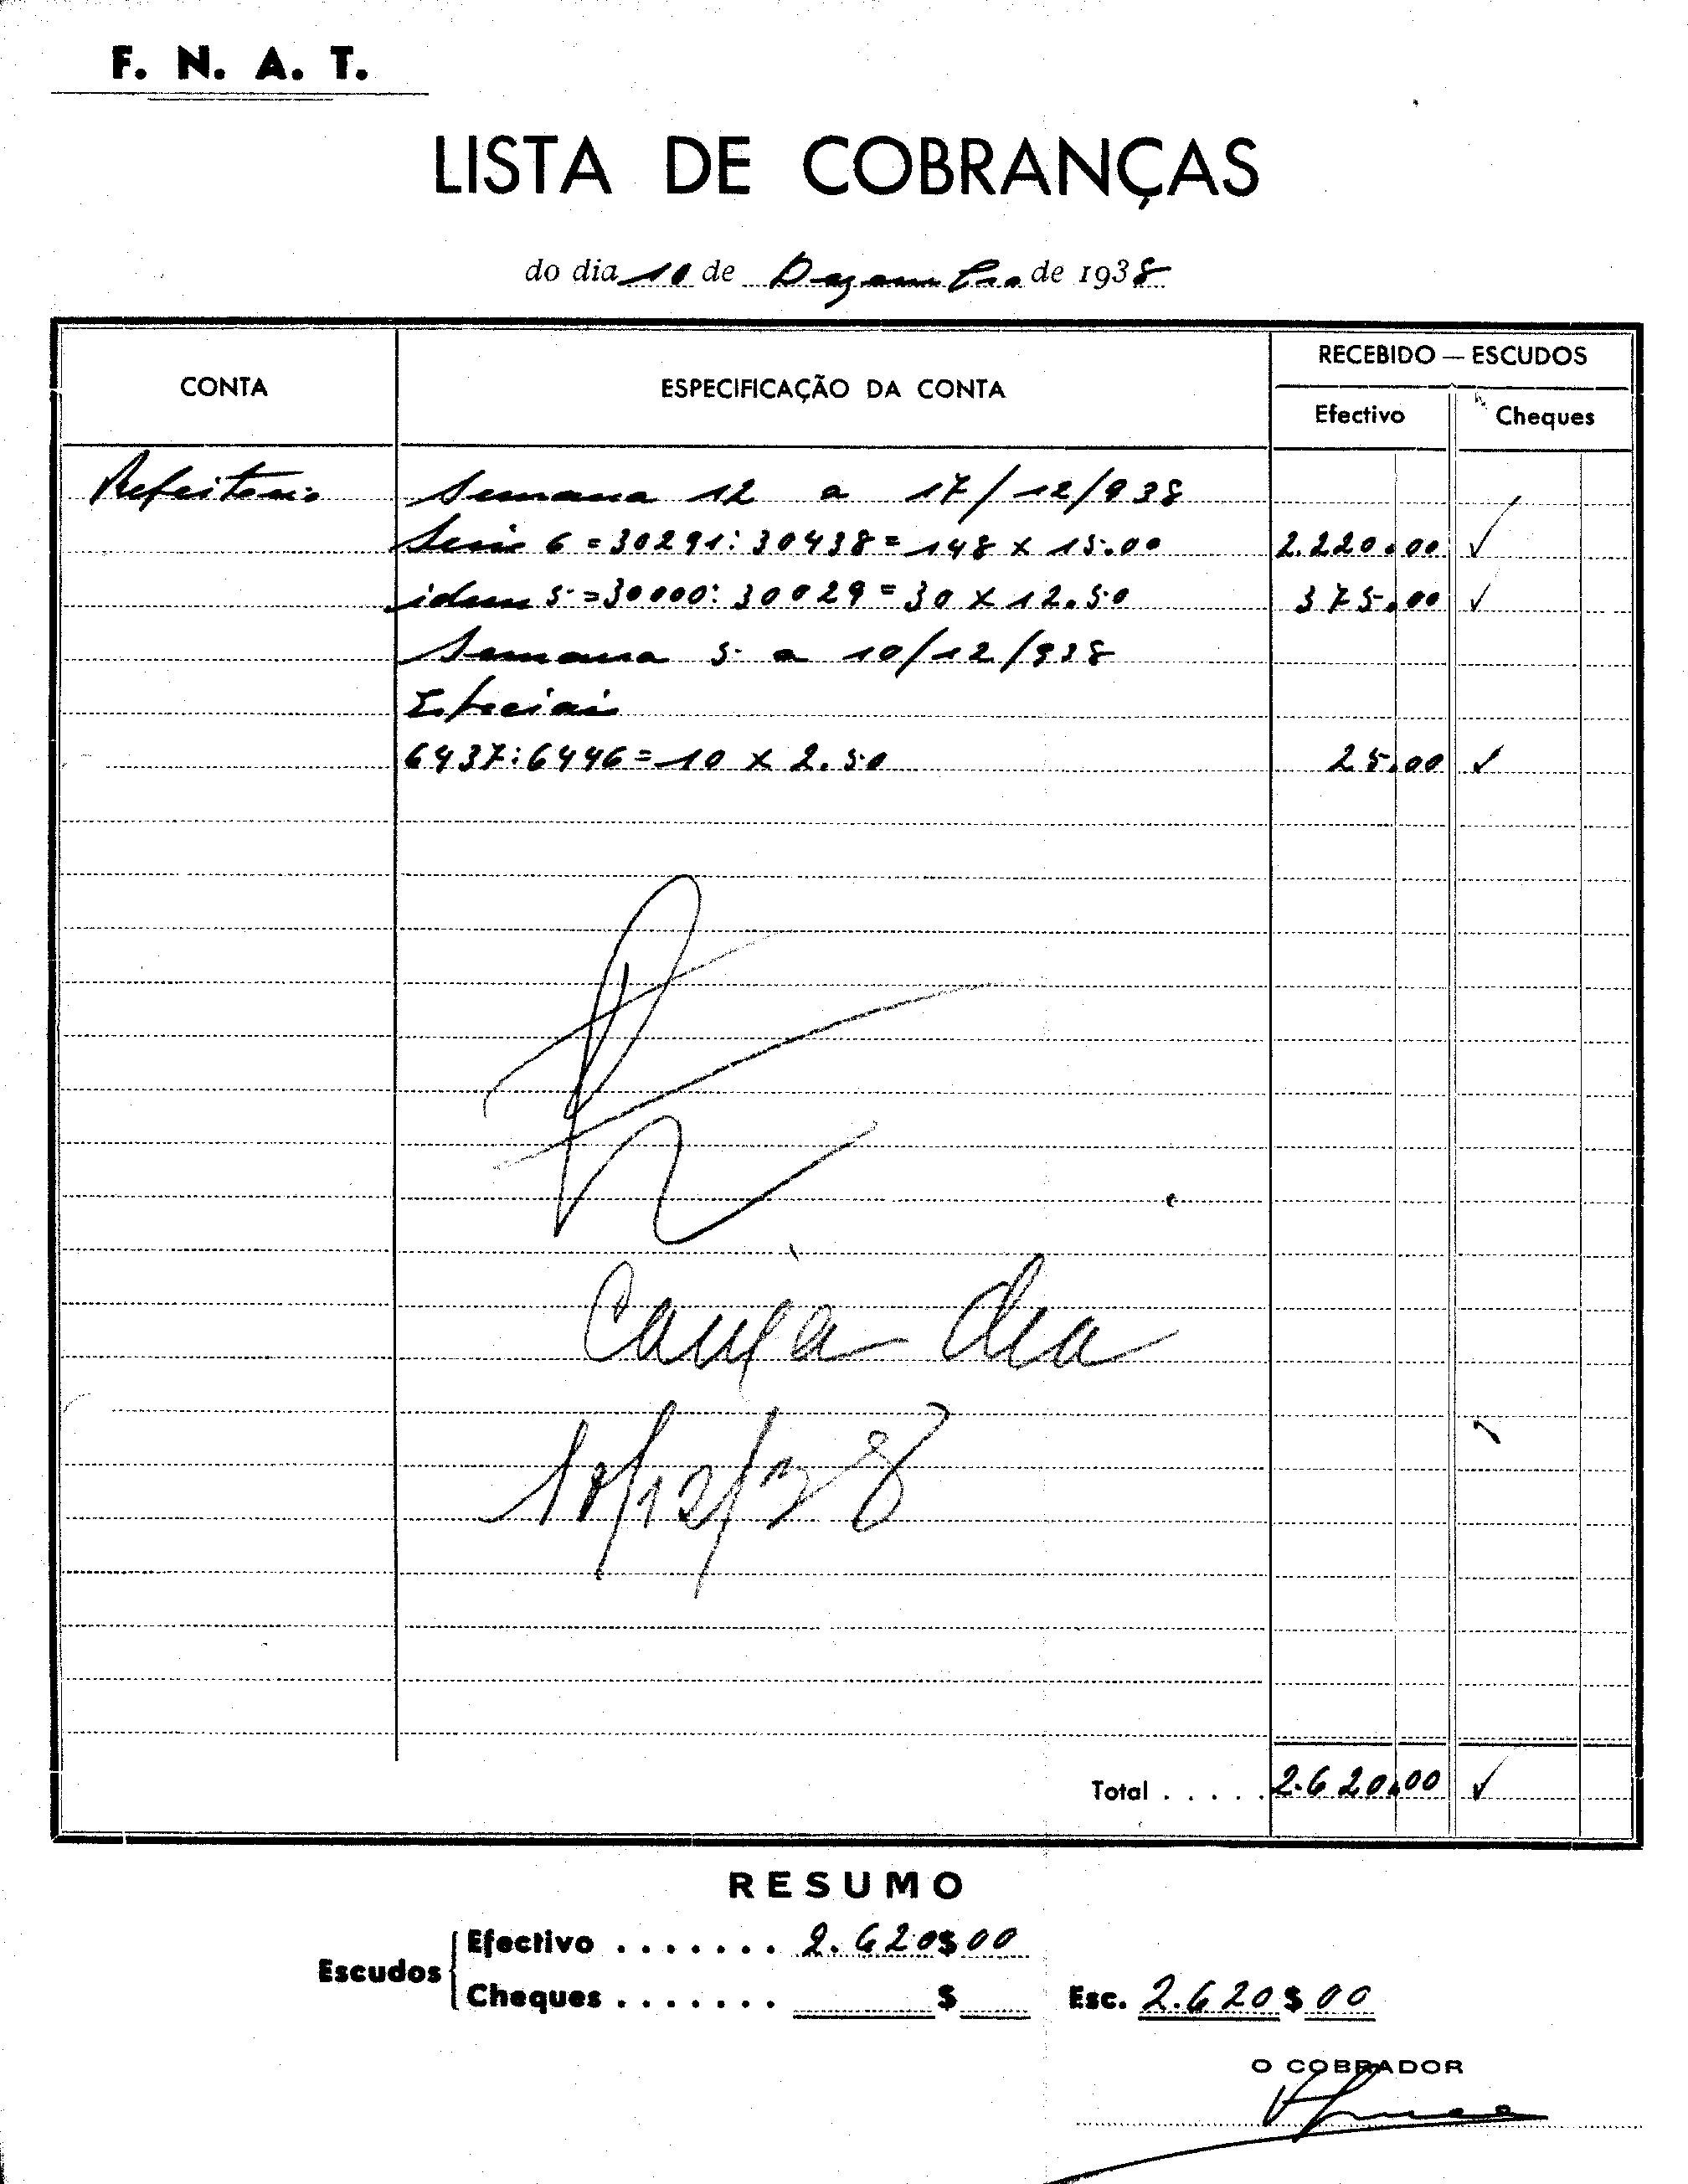 F. N. A. T.
LISTA DE COBRANÇAS
do dia 10 de Dezembro de 1938
CONTA
ESPECIFICAÇÃO DA CONTA
RECEBIDO — ESCUDOS
Efectivo
Cheques
Refeitorio Semana 12 a 17/12/938
Serie 6 = 30291: 30438 = 148 x 15.00 2.220.00 ✓
idem 5 = 30000: 30029 = 30 x 12.50 375.00 ✓
Semana 5 a 10/12/938
Especiais
6437: 6446 = 10 x 2.50 25.00 ✓
Caixa dia
10/12/38
Total . . . . . 2.620.00 ✓
RESUMO
Escudos
Efectivo . . . . . . . 2.620$00
Cheques . . . . . . . $
Esc. 2.620$00
O COBRADOR